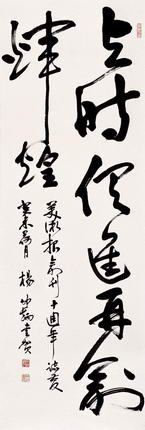 与时俱进再创
辉煌
美术报创刊十周年志庆
癸未荷月 杨
书贺